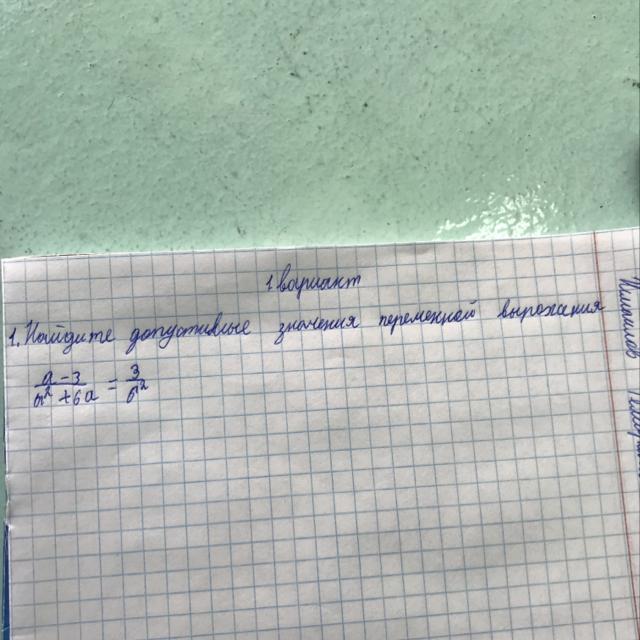 1 вариант
1. Найдите допустивые значения переменной выражения
a - 3 / a² + 6a = 3 / a²